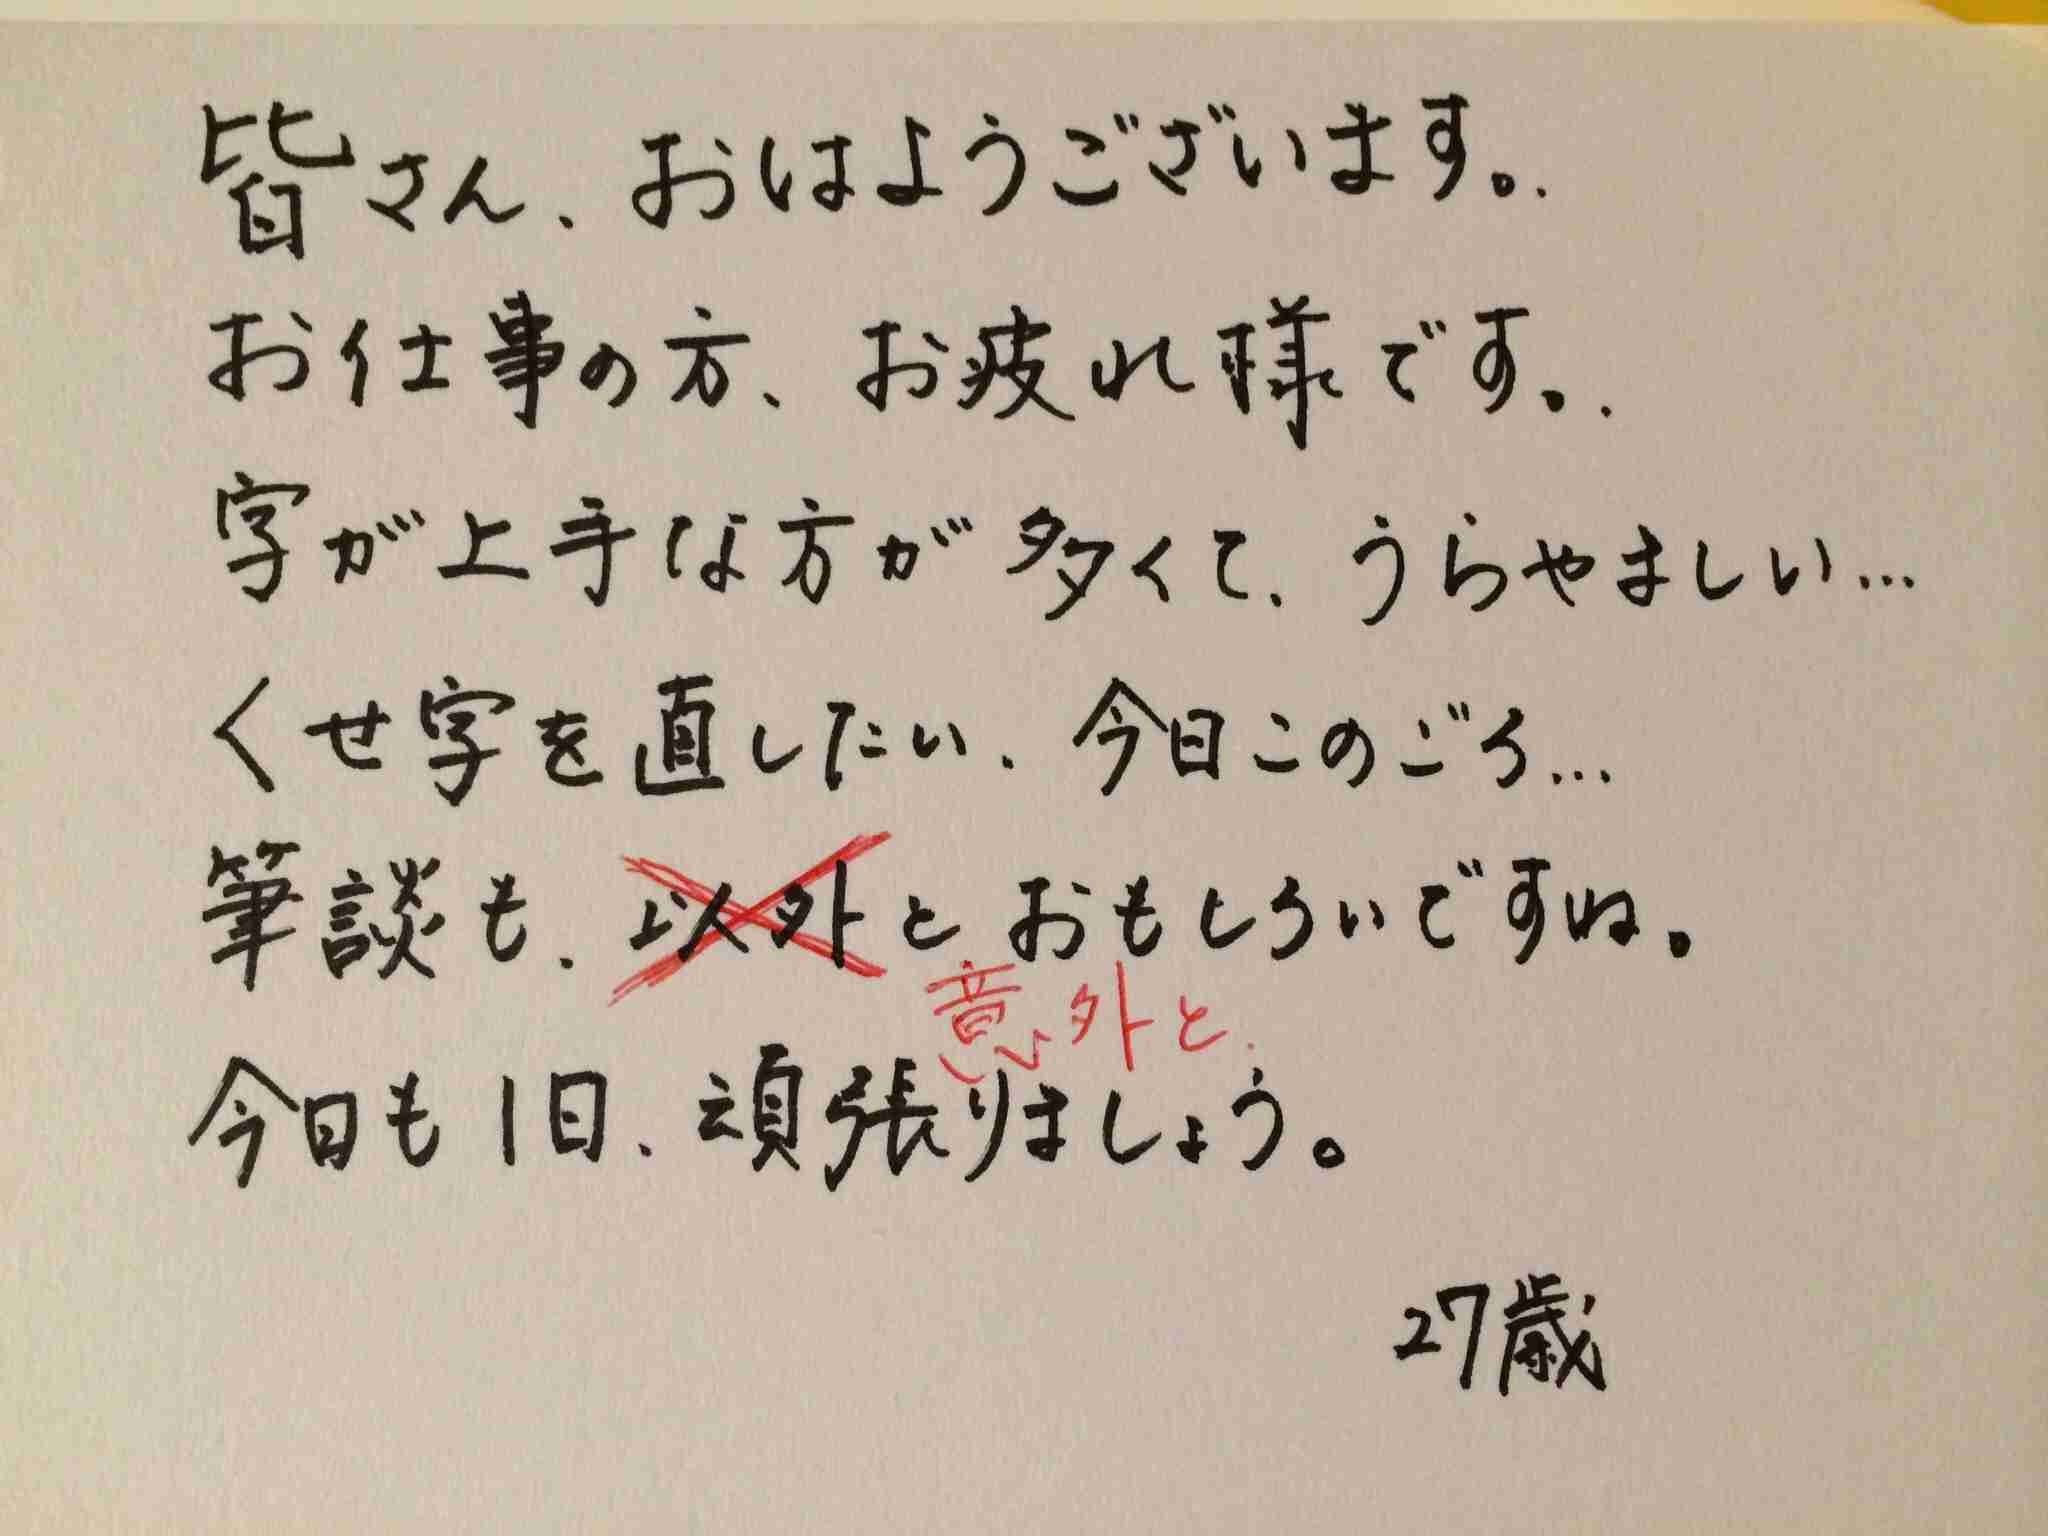 皆さん、おはようございます。.
お仕事の方、お疲れ様です。.
字が上手な方が多くて、うらやましい…
くせ字を直したい、今日このごろ…
筆談も、以外とおもしろいですね。
意外と.
今日も1日、頑張りましょう。
27歳